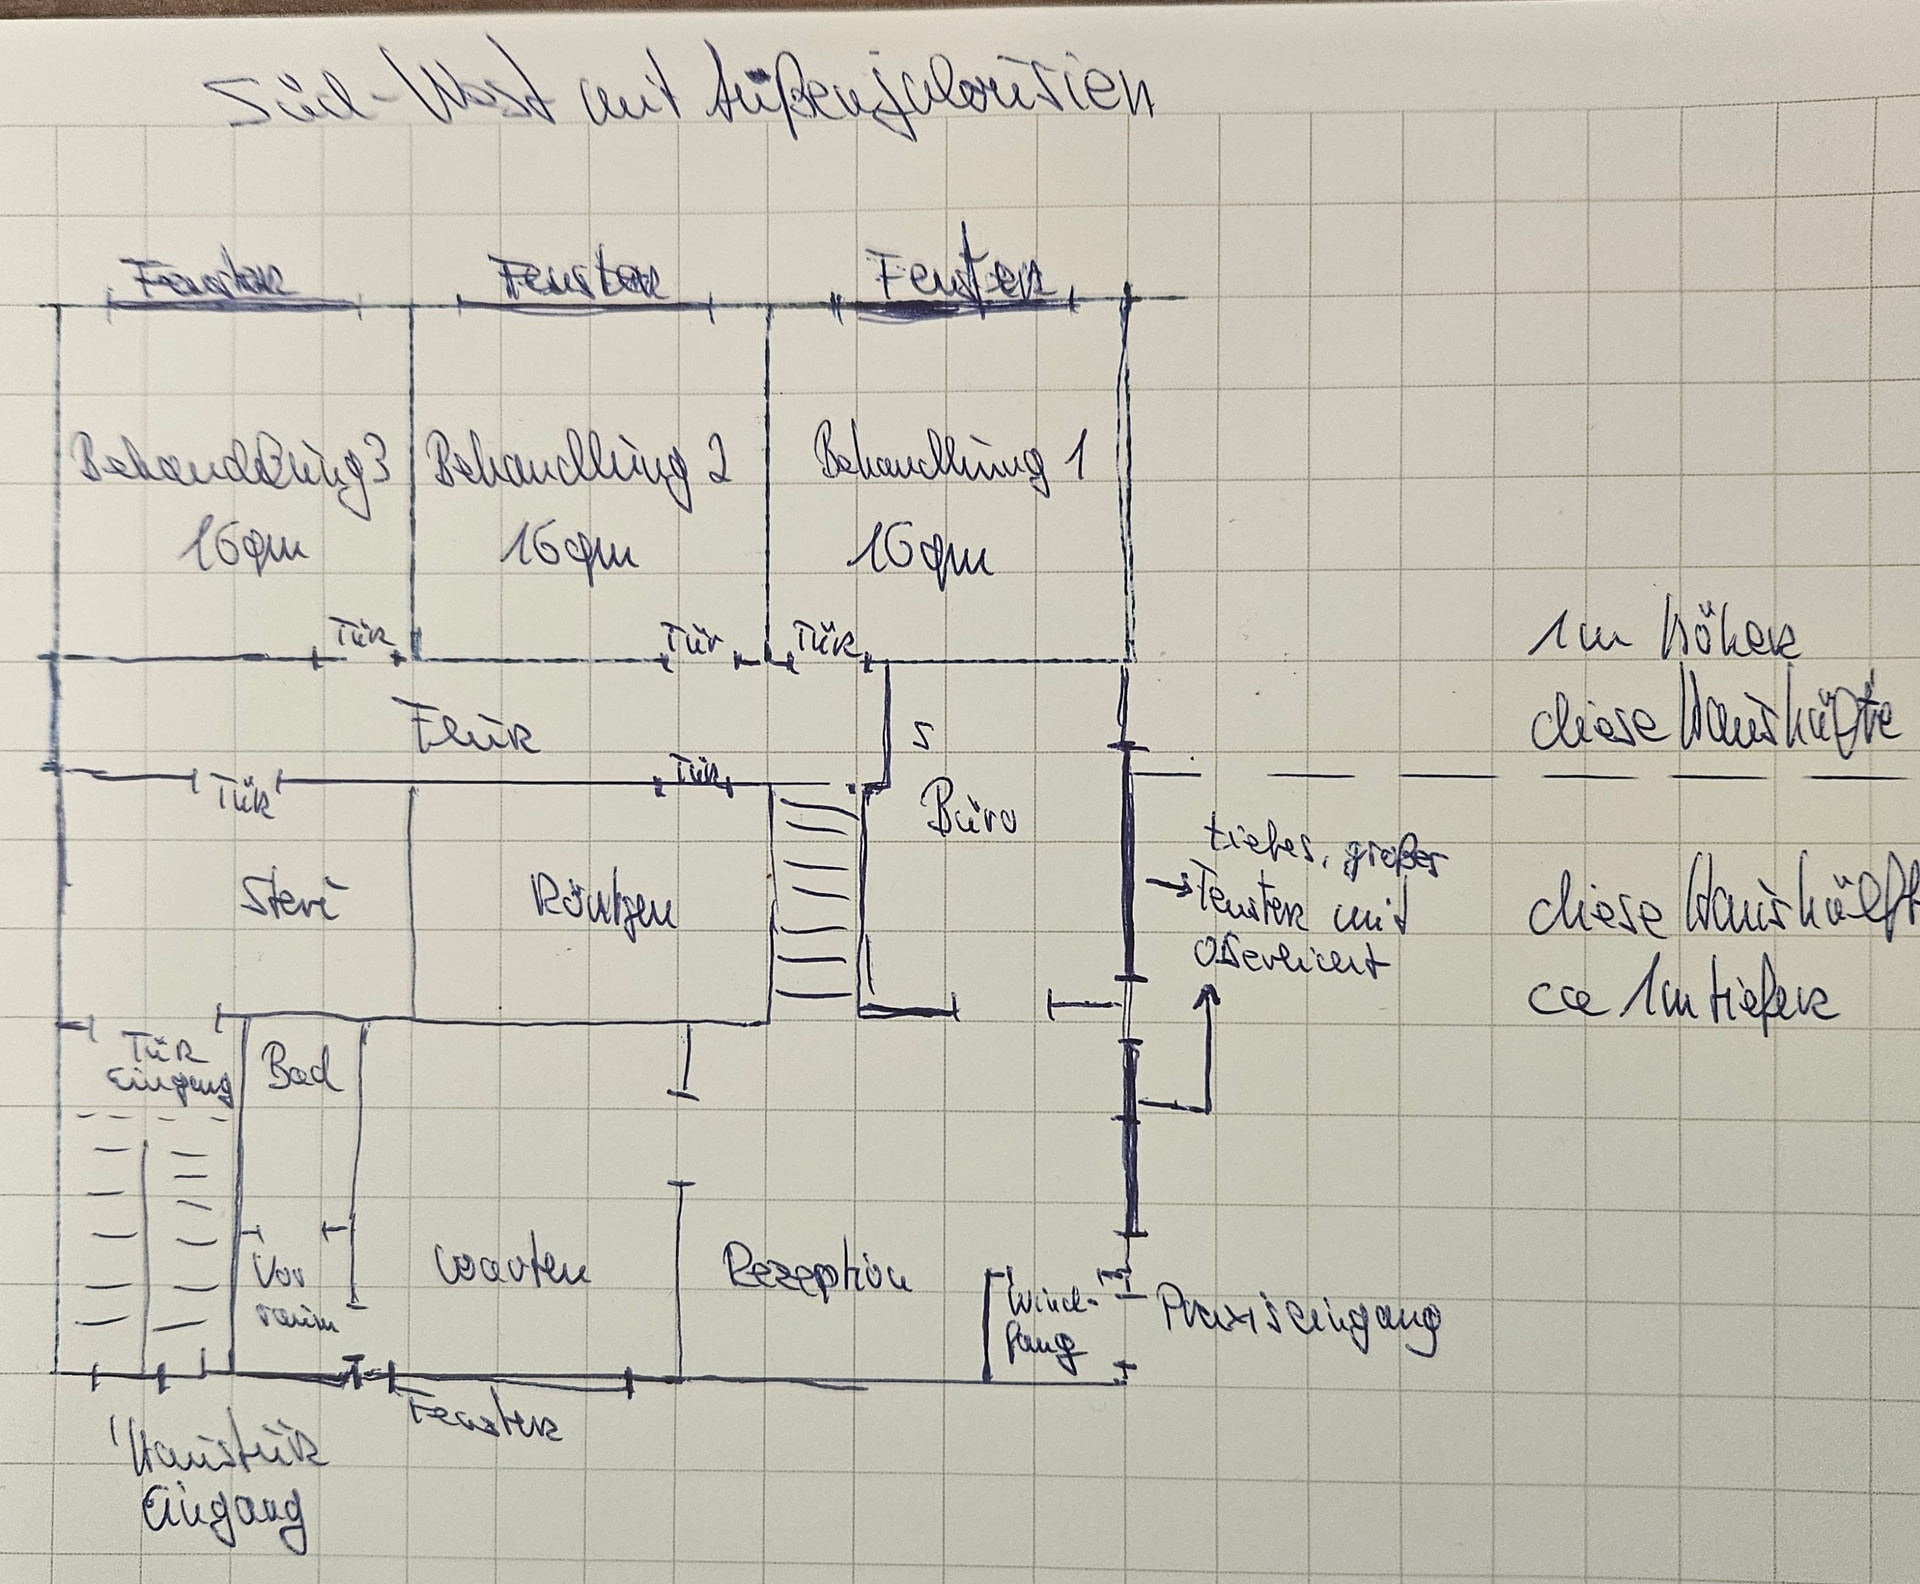 Süd-West mit Außenjalousien
Fenster Fenster Fenster
Behandlung 3 Behandlung 2 Behandlung 1
16qm 16qm 16qm
Tür Tür Tür
1m höher
diese Haushälfte
Flur
Tür Tür
Büro
tiefes, großes
Fenster mit
Oberlicht
Steri Röntgen
diese Haushälft
ca 1m tiefer
Tür
Eingang
Bad
Vor
raum
Warten
Rezeption
Wind-
fang
Praxiseingang
Fenster
Haustür
Eingang